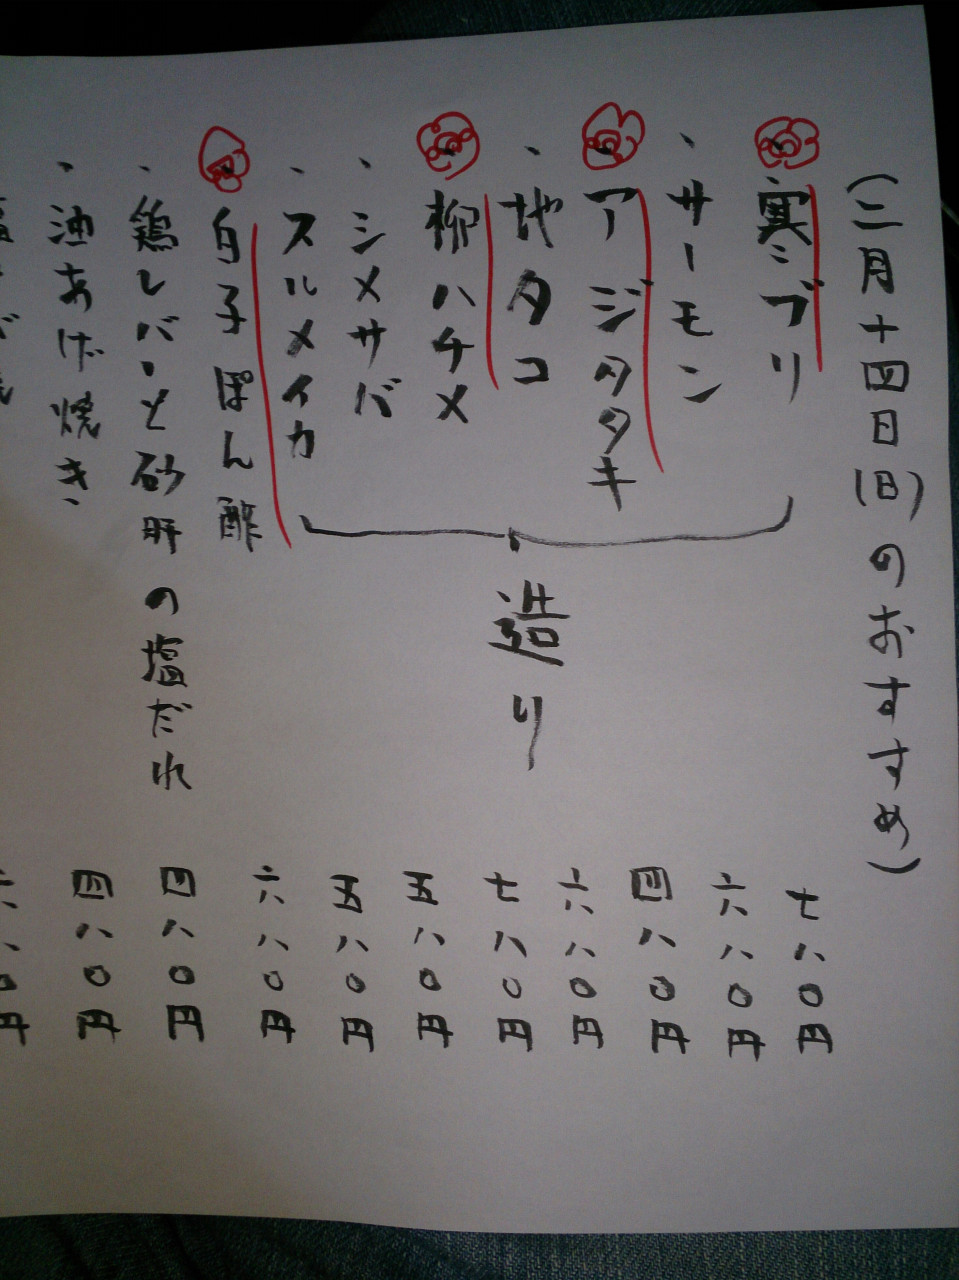 (三月十四日(日)のおすすめ)
・寒ブリ 七八〇円
・サーモン 六八〇円
・アジタタキ 四八〇円
・地タコ 六八〇円
・柳ハチメ 七八〇円
・シメサバ 五八〇円
・スルメイカ 五八〇円
造り
・白子ぽん酢 六八〇円
・鶏レバーと砂肝の塩だれ 四八〇円
・油あげ焼き 四八〇円
六八〇円